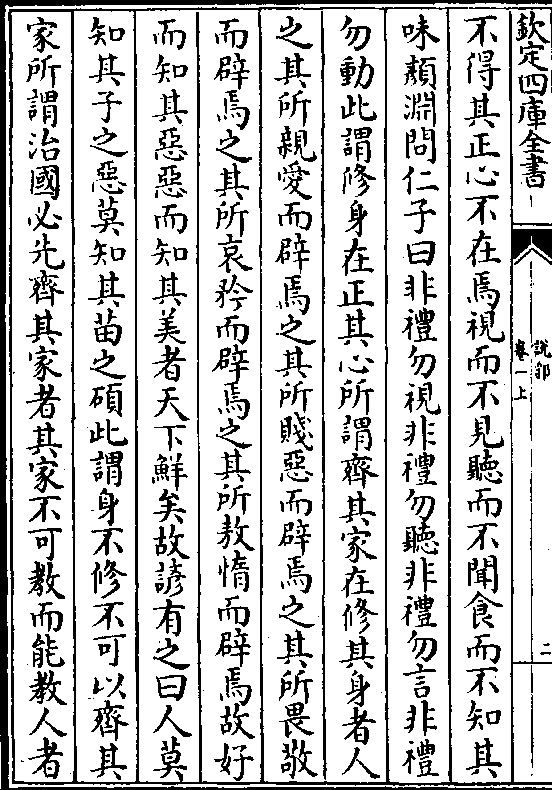 欽定四庫全書
說郛
卷一上
二
不得其正心不在焉視而不見聽而不聞食而不知其
味顔淵問仁子曰非禮勿視非禮勿聽非禮勿言非禮
勿動此謂修身在正其心所謂齊其家在修其身者人
之其所親愛而辟焉之其所賤惡而辟焉之其所畏敬
而辟焉之其所哀矜而辟焉之其所敖惰而辟焉故好
而知其惡惡而知其美者天下鮮矣故諺有之曰人莫
知其子之惡莫知其苗之碩此謂身不修不可以齊其
家所謂治國必先齊其家者其家不可教而能教人者